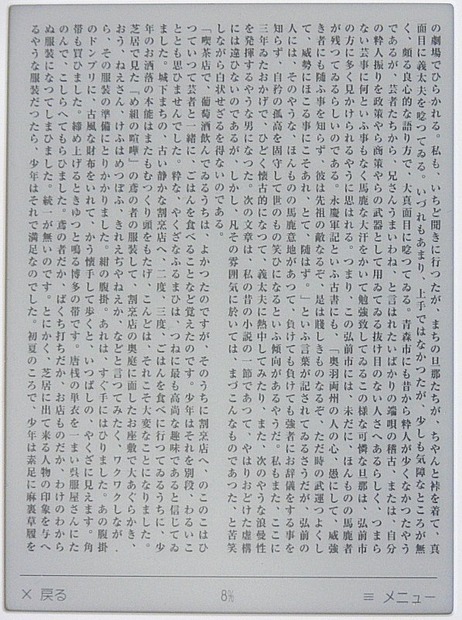 の劇場でひらかれる。私も、いちど聞きに行つたが、まちの旦那たちが、ちやんと裃を着て、真
面目に義太夫を唸つてゐる。いづれもあまり、上手ではなかつたが、少しも気障なところが無
く、頗る良心的な語り方で、大真面目に唸つてゐる。青森市にも昔から粋人が少くなかつたやう
であるが、芸者たちから、兄さんうまいわね、と言はれたいばかりの端唄の稽古、または、自分
の粋人振りを政策やら商策やらの武器として用ゐてゐる抜け目のない人さへあるらしく、つまら
ない芸事に何といふ事もなく馬鹿な大汗をかいて勉強致してゐるこの様な可憐な旦那は、弘前市
の方に多く見かけられるやうに思はれる。つまり、この弘前市には、未だに、ほんものの馬鹿者
が残つてゐるらしいのである。永慶軍記といふ古書にも、「奥羽両州の人の心、愚にして、威強
き者にも随ふ事を知らず、彼は先祖の敵なるぞ、是は賤しきものなるぞ、ただ時の武運つよくし
て、威勢にほこる事にこそあれ、とて、随はず。」といふ言葉が記されてゐるさうだが、弘前の
人には、そのやうな、ほんものの馬鹿意地があつて、負けても負けても強者にお辞儀をする事を
知らず、自矜の孤高を固守して世のもの笑ひになるといふ傾向があるやうだ。私もまた、ここに
三年ゐたおかげで、ひどく懐古的になつて、義太夫に熱中してみたり、また、次のやうな浪曼性
を発揮するやうな男になつた。次の文章は、私の昔の小説の一節であつて、やはりおどけた虚構
には違ひないのであるが、しかし、凡その雰囲気に於いては、まづこんなものであつた、と苦笑
しながら白状せざるを得ないのである。
「喫茶店で、葡萄酒飲んでゐるうちは、よかつたのですが、そのうちに割烹店へ、のこのこはひ
つていつて芸者と一緒に、ごはんを食べることなど覚えたのです。少年はそれを別段、わるいこ
ととも思ひませんでした。粋な、やくざなふるまひは、つねに最も高尚な趣味であると信じてゐ
ました。城下まちの、古い静かな割烹店へ、二度、三度、ごはんを食べに行つてゐるうちに、少
年のお洒落の本能はまたもむつくり頭をもたげ、こんどは、それこそ大変なことになりました。
芝居で見た「め組の喧嘩」の鳶の者の服装して、割烹店の奥庭に面したお座敷で大あぐらかき、
おう、ねえさん、けふはめつぽふ、きれえぢやねえか、などと言つてみたく、ワクワクしなが
ら、その服装の準備にとりかかりました。紺の腹掛。あれは、すぐ手にはひりました。あの腹掛
のドンブリに、古風な財布をいれて、かう懐手して歩くと、いつぱしの、やくざに見えます。角
帯も買ひました。締め上げるときゆつと鳴る博多の帯です。唐桟の単衣を一まい呉服屋さんにた
のんで、こしらへてもらひました。鳶の者だか、ばくち打ちだか、お店ものだか、わけのわから
ぬ服装になつてしまひました。統一が無いのです。とにかく、芝居に出て来る人物の印象を与へ
るやうな服装だつたら、少年はそれで満足なのでした。初夏のころで、少年は素足に麻裏草履を
× 戻る
8%
≡ メニュー